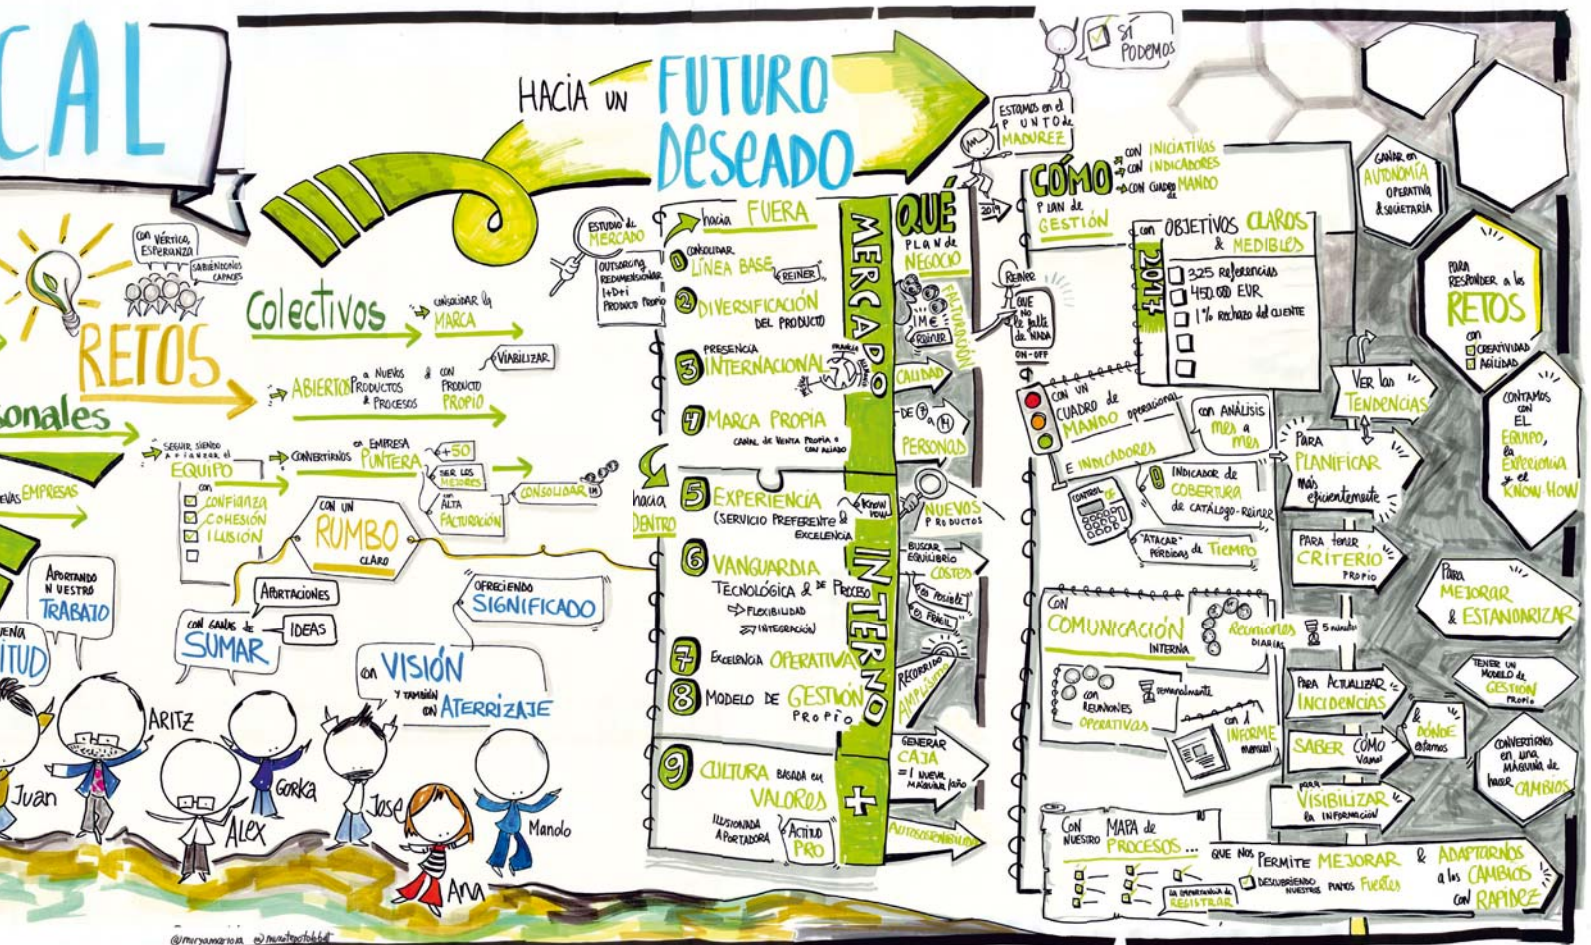 CAL
HACIA UN
FUTURO
DESEADO
SÍ
PODEMOS
ESTAMOS en el
PUNTO de
MADUREZ
CON VÉRTIGO,
ESPERANZA
SABIÉNDONOS
CAPACES
RETOS
sonales
EMPRESAS
Colectivos
CONSOLIDAR la
MARCA
VIABILIZAR
ABIERTOS
a NUEVOS
PRODUCTOS
& PROCESOS
& CON
PRODUCTO
PROPIO
SEGUIR SIENDO
AFIANZAR el
EQUIPO
con
CONFIANZA
COHESIÓN
ILUSIÓN
CONVERTIRNOS
en EMPRESA
PUNTERA
+50
SER LOS
MEJORES
con
ALTA
FACTURACIÓN
CONSOLIDAR
CON UN
RUMBO
CLARO
APORTANDO
NUESTRO
TRABAJO
ITUD
APORTACIONES
CON GANAS de
SUMAR
IDEAS
OFRECIENDO
SIGNIFICADO
con VISIÓN
Y TAMBIÉN
CON ATERRIZAJE
Juan
ARITZ
ALEX
GORKA
Jose
Ana
Mando
ESTUDIO de
MERCADO
OUTSORCING
REDIMENSIONAR
I+D+i
PRODUCTO PROPIO
hacia FUERA
1 CONSOLIDAR
LÍNEA BASE
REINER
2 DIVERSIFICACIÓN
DEL PRODUCTO
3 PRESENCIA
INTERNACIONAL
FRANCIA
4 MARCA PROPIA
CANAL de VENTA PROPIA o
CON ALIADO
MERCADO
hacia
DENTRO
5 EXPERIENCIA
(SERVICIO PREFERENTE &
EXCELENCIA
KNOW
HOW
6 VANGUARDIA
TECNOLÓGICA & DE PROCESO
FLEXIBILIDAD
INTEGRACIÓN
7 EXCELENCIA OPERATIVA
8 MODELO DE GESTIÓN
PROPIO
INTERNO
9 CULTURA BASADA en
VALORES
ILUSIONADA
APORTADORA
ACTITUD
PRO
+
QUÉ
PLAN de
NEGOCIO
FACTURACIÓN
1M€
REINER
CALIDAD
DE 7 a 14
PERSONAS
NUEVOS
PRODUCTOS
BUSCAR
EQUILIBRIO
COSTES
es POSIBLE
es FRÁGIL
RECORRIDO
AMPLÍSIMO
GENERAR
CAJA
= 1 NUEVA
MÁQUINA/AÑO
2019
CÓMO
PLAN de
GESTIÓN
CON INICIATIVAS
CON INDICADORES
CON CUADRO de MANDO
REINER
QUE
NO
le falte
de NADA
ON-OFF
con OBJETIVOS CLAROS
& MEDIBLES
2017
325 Referencias
450.000 EUR
1% Rechazo del CLIENTE
CON UN
CUADRO de
MANDO operacional
E INDICADORES
con ANÁLISIS
MES a
MES
INDICADOR de
COBERTURA
de CATÁLOGO-REINER
CONTROL OF
"ATACAR"
PÉRDIDAS de TIEMPO
CON
COMUNICACIÓN
INTERNA
REUNIONES
DIARIAS
5 minutos
con
REUNIONES
OPERATIVAS
semanalmente
con 1
INFORME
mensual
CON MAPA de
NUESTRO PROCESOS...
LA IMPORTANCIA de
REGISTRAR
QUE NOS PERMITE MEJORAR
DESCUBRIENDO
NUESTROS PUNTOS FUERTES
& ADAPTARNOS
a los CAMBIOS
CON RAPIDEZ
VER las
TENDENCIAS
PARA
PLANIFICAR
más
eficientemente
PARA tener
CRITERIO
PROPIO
PARA ACTUALIZAR
INCIDENCIAS
SABER CÓMO
vamos
& DÓNDE
estamos
para
VISIBILIZAR
la INFORMACIÓN
GANAR en
AUTONOMÍA
OPERATIVA
& SOCIETARIA
PARA
RESPONDER a los
RETOS
con
CREATIVIDAD
AGILIDAD
CONTAMOS
CON
EL
EQUIPO,
la
EXPERIENCIA
y el
KNOW-HOW
PARA
MEJORAR
& ESTANDARIZAR
TENER UN
MODELO de
GESTIÓN
PROPIO
CONVERTIRNOS
en una
MÁQUINA de
hacer CAMBIOS